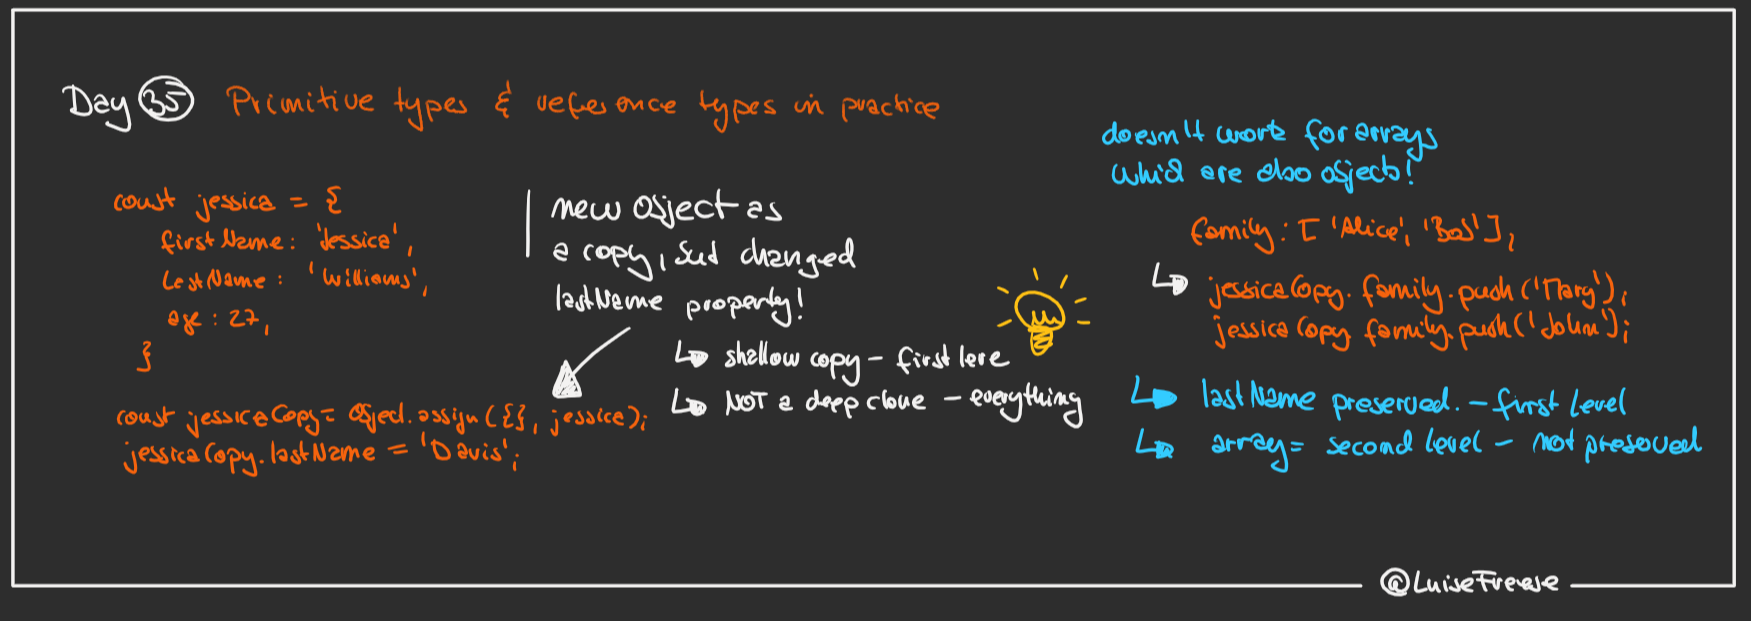 Day 35 Primitive types & reference types in practice
const jessica = {
firstName: 'Jessica',
lastName: 'Williams',
age: 27,
}
const jessicaCopy = Object.assign({}, jessica);
jessicaCopy.lastName = 'Davis';
new object as
a copy, but changed
lastName property!
shallow copy - first leve
NOT a deep clone - everything
doesn't work for arrays
which are also objects!
family: ['Alice', 'Bob'],
jessicaCopy.family.push('Mary');
jessicaCopy.family.push('John');
lastName preserved. - first level
array = second level - not preserved
@LuiseFreese